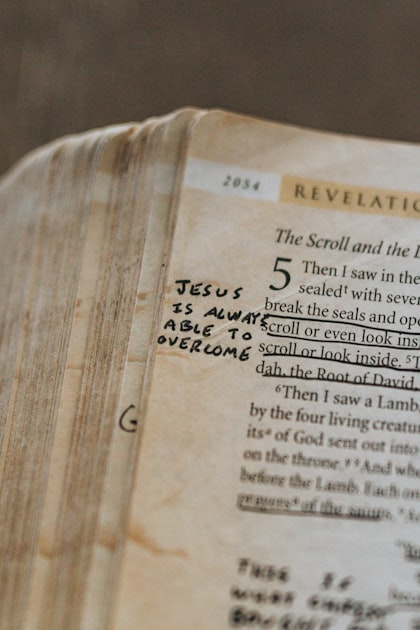 2054 REVELATIO
The Scroll and the L
5 Then I saw in the
sealedᵗ with seve
break the seals and ope
scroll or even look ins
scroll or look inside. ⁵T
dah, the Root of David,
⁶Then I saw a Lamb,
by the four living creatu
itsᵃ of God sent out into
on the throne. And whe
before the Lamb. Each on
prayers of the saints.
JESUS
IS ALWAYS
ABLE TO
OVERCOME
G